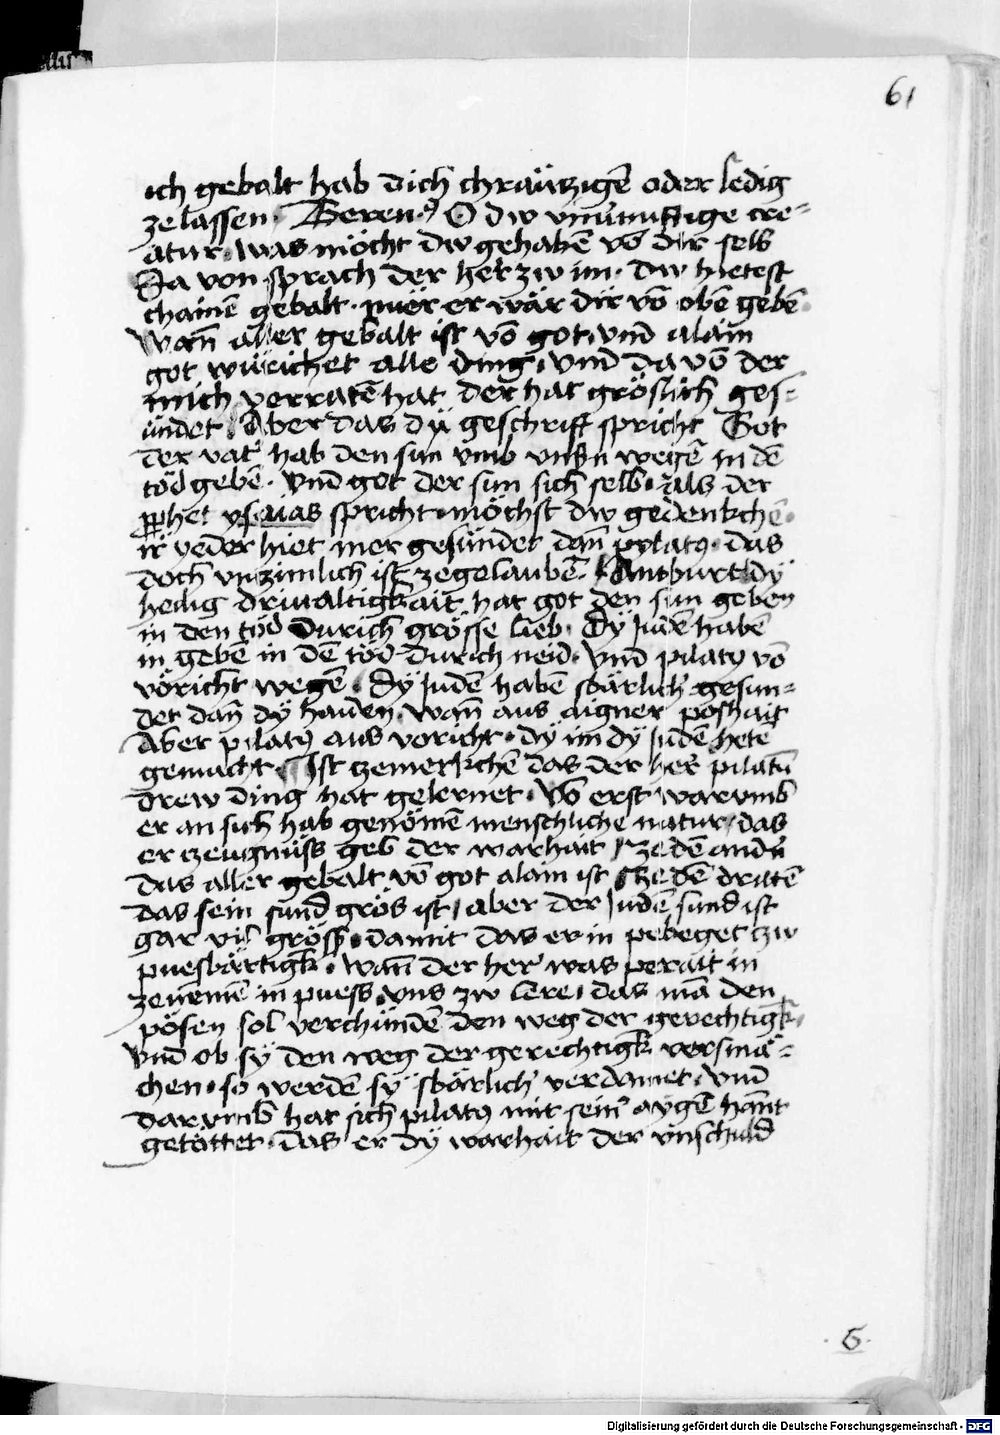 61
ich gebalt hab dich chräutzigē oder ledig
ze lassen. Beren⁹ O dw vnu̇nufftige cre=
atur. was möcht dw gehabē võ dir selb
Da von sprach der her zw im. dw hietest
chainē gebalt. nuer er wär dir võ obē gebē.
Wañ aller gebalt ist võ got. vnd alain
got würichet alle ding. vnd da võ der
mich verratē hat der hat gröslich ges=
ündet. Aber das dÿ geschrift spricht Got
der vatˀ hab den sun vmb vnsˀn wegē in dē
töd gebē. vnd got der sun sich selb. als der
ꝓphet ysaias spricht. möchst dw gedenkchē.
ir yeder hiet mer gesündet dañ pylatꝰ. das
doch vnzimlich ist ze gelaubē. Antburt dÿ
heilig driualtigkait hat got den sun geben
in den töd durich grösse lieb. Dÿ Judē habē
in gebē in dē töd durich neid. vnd pilatꝰ võ
vöricht wegē. Dÿ Judē habē sbärlich gesun=
det dañ dÿ haiden. wañ aus aigner poshait
Aber pilatꝰ aus voricht. dÿ im dÿ Judē hetē
gemacht. Ist czemerkchē das der her pilatū
drew ding hat gelernet. Võ erst warumb
er an sich hab genömē menschliche natur, das
er czeugnüss geb der warhait. ze dē andˀn
das aller gebalt võ got alain ist. ze dē drittē
das sein sund grös ist, aber der Judē sund ist
gar vil grösß. damit das er in pebeget zw
puesbärtigk. wañ der her was perait in
ze nemē in puess. vns zw lere, das mā den
pösen sol verchündē den weg der gerechtigk.
vnd ob sÿ den weg der gerechtigk versmä=
chen. so werdē sÿ sbärlich verdamet. vnd
darumb hat sich pilatꝰ mit seinˀ aygē hānt
getöttet. das er dÿ warhait der vnschuld
. 6 .
Digitalisierung gefördert durch die Deutsche Forschungsgemeinschaft - DFG